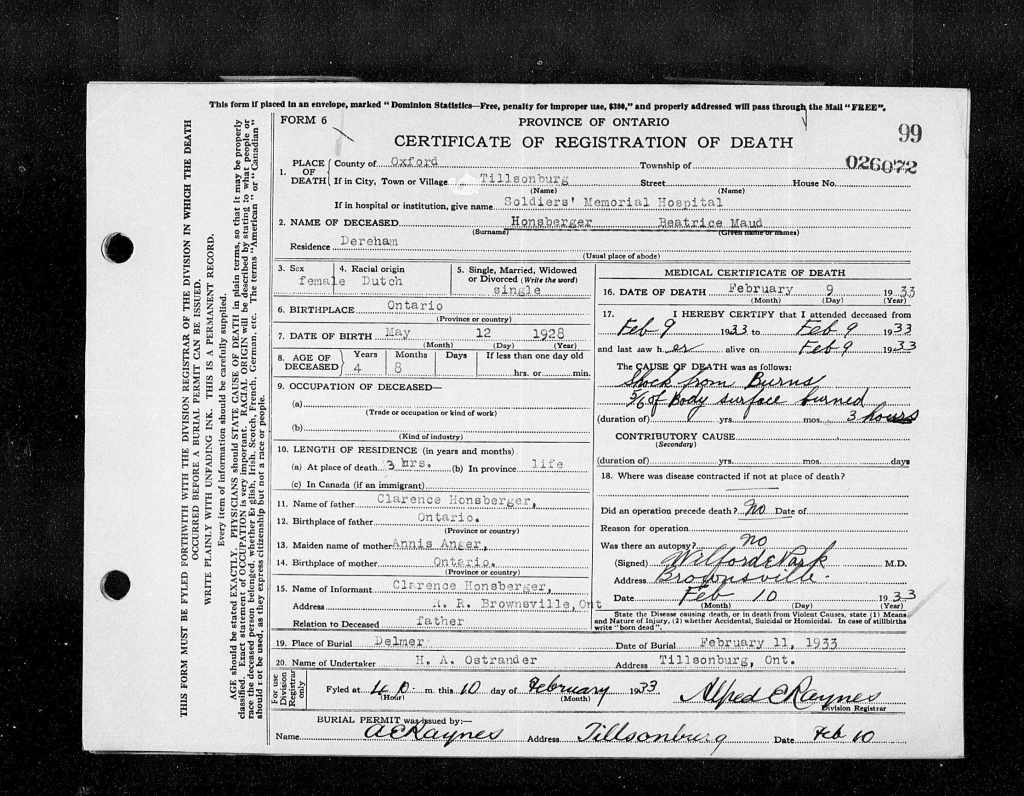 This form if placed in an envelope, marked "Dominion Statistics—Free, penalty for improper use, $300," and properly addressed will pass through the Mail "FREE".
THIS FORM MUST BE FYLED FORTHWITH WITH THE DIVISION REGISTRAR OF THE DIVISION IN WHICH THE DEATH
OCCURRED BEFORE A BURIAL PERMIT CAN BE ISSUED.
WRITE PLAINLY WITH UNFADING INK. THIS IS A PERMANENT RECORD.
Every item of information should be carefully supplied.
AGE should be stated EXACTLY. PHYSICIANS should STATE CAUSE OF DEATH in plain terms, so that it may be properly
classified. Exact statement of OCCUPATION is very important. RACIAL ORIGIN will be described by stating to what people or
race the deceased person belonged, whether English, Irish, Scotch, French, German, etc. The terms "American" or "Canadian"
should not be used, as they express citizenship but not a race or people.
FORM 6
PROVINCE OF ONTARIO
99
CERTIFICATE OF REGISTRATION OF DEATH
026072
1. PLACE OF DEATH
County of Oxford Township of
If in City, Town or Village Tillsonburg Street House No.
(Name) (Name)
If in hospital or institution, give name Soldiers' Memorial Hospital
2. NAME OF DECEASED Honsberger Beatrice Maud
(Surname) (Given name or names)
Residence Dereham
(Usual place of abode)
3. Sex female
4. Racial origin Dutch
5. Single, Married, Widowed
or Divorced (Write the word)
single
6. BIRTHPLACE Ontario
(Province or country)
7. DATE OF BIRTH May 12 1928
(Month) (Day) (Year)
8. AGE OF DECEASED
Years Months Days If less than one day old
4 8 hrs. or min.
9. OCCUPATION OF DECEASED—
(a)
(Trade or occupation or kind of work)
(b)
(Kind of industry)
10. LENGTH OF RESIDENCE (in years and months)
(a) At place of death 3 hrs. (b) In province life
(c) In Canada (if an immigrant)
11. Name of father Clarence Honsberger,
12. Birthplace of father Ontario.
(Province or country)
13. Maiden name of mother Annis Anger,
14. Birthplace of mother Ontario.
(Province or country)
15. Name of Informant Clarence Honsberger,
Address R. R. Brownsville, Ont
Relation to Deceased father
MEDICAL CERTIFICATE OF DEATH
16. DATE OF DEATH February 9 1933
(Month) (Day) (Year)
17. I HEREBY CERTIFY that I attended deceased from
Feb 9 1933 to Feb 9 1933
and last saw her alive on Feb 9 1933
The CAUSE OF DEATH was as follows:
Shock from Burns
5/6 of Body surface burned
(duration of) yrs. mos. 3 hours
CONTRIBUTORY CAUSE
(Secondary)
(duration of) yrs. mos. days
18. Where was disease contracted if not at place of death?
Did an operation precede death? No Date of
Reason for operation
Was there an autopsy? no
(Signed) Wilford E Park M.D.
Address Brownsville.
Date Feb 10 1933
(Month) (Day) (Year)
State the Disease causing death, or in death from Violent Causes, state (1) Means
and Nature of Injury, (2) whether Accidental, Suicidal or Homicidal. In case of stillbirths
write "born dead".
19. Place of Burial Delmer Date of Burial February 11, 1933
20. Name of Undertaker H. A. Ostrander Address Tillsonburg, Ont.
For use Division Registrar only
Fyled at 4 P. m. this 10 day of February 1933 Alfred E Raynes
(Hour) (Month) Division Registrar
BURIAL PERMIT was issued by:—
Name A E Raynes Address Tillsonburg Date Feb 10